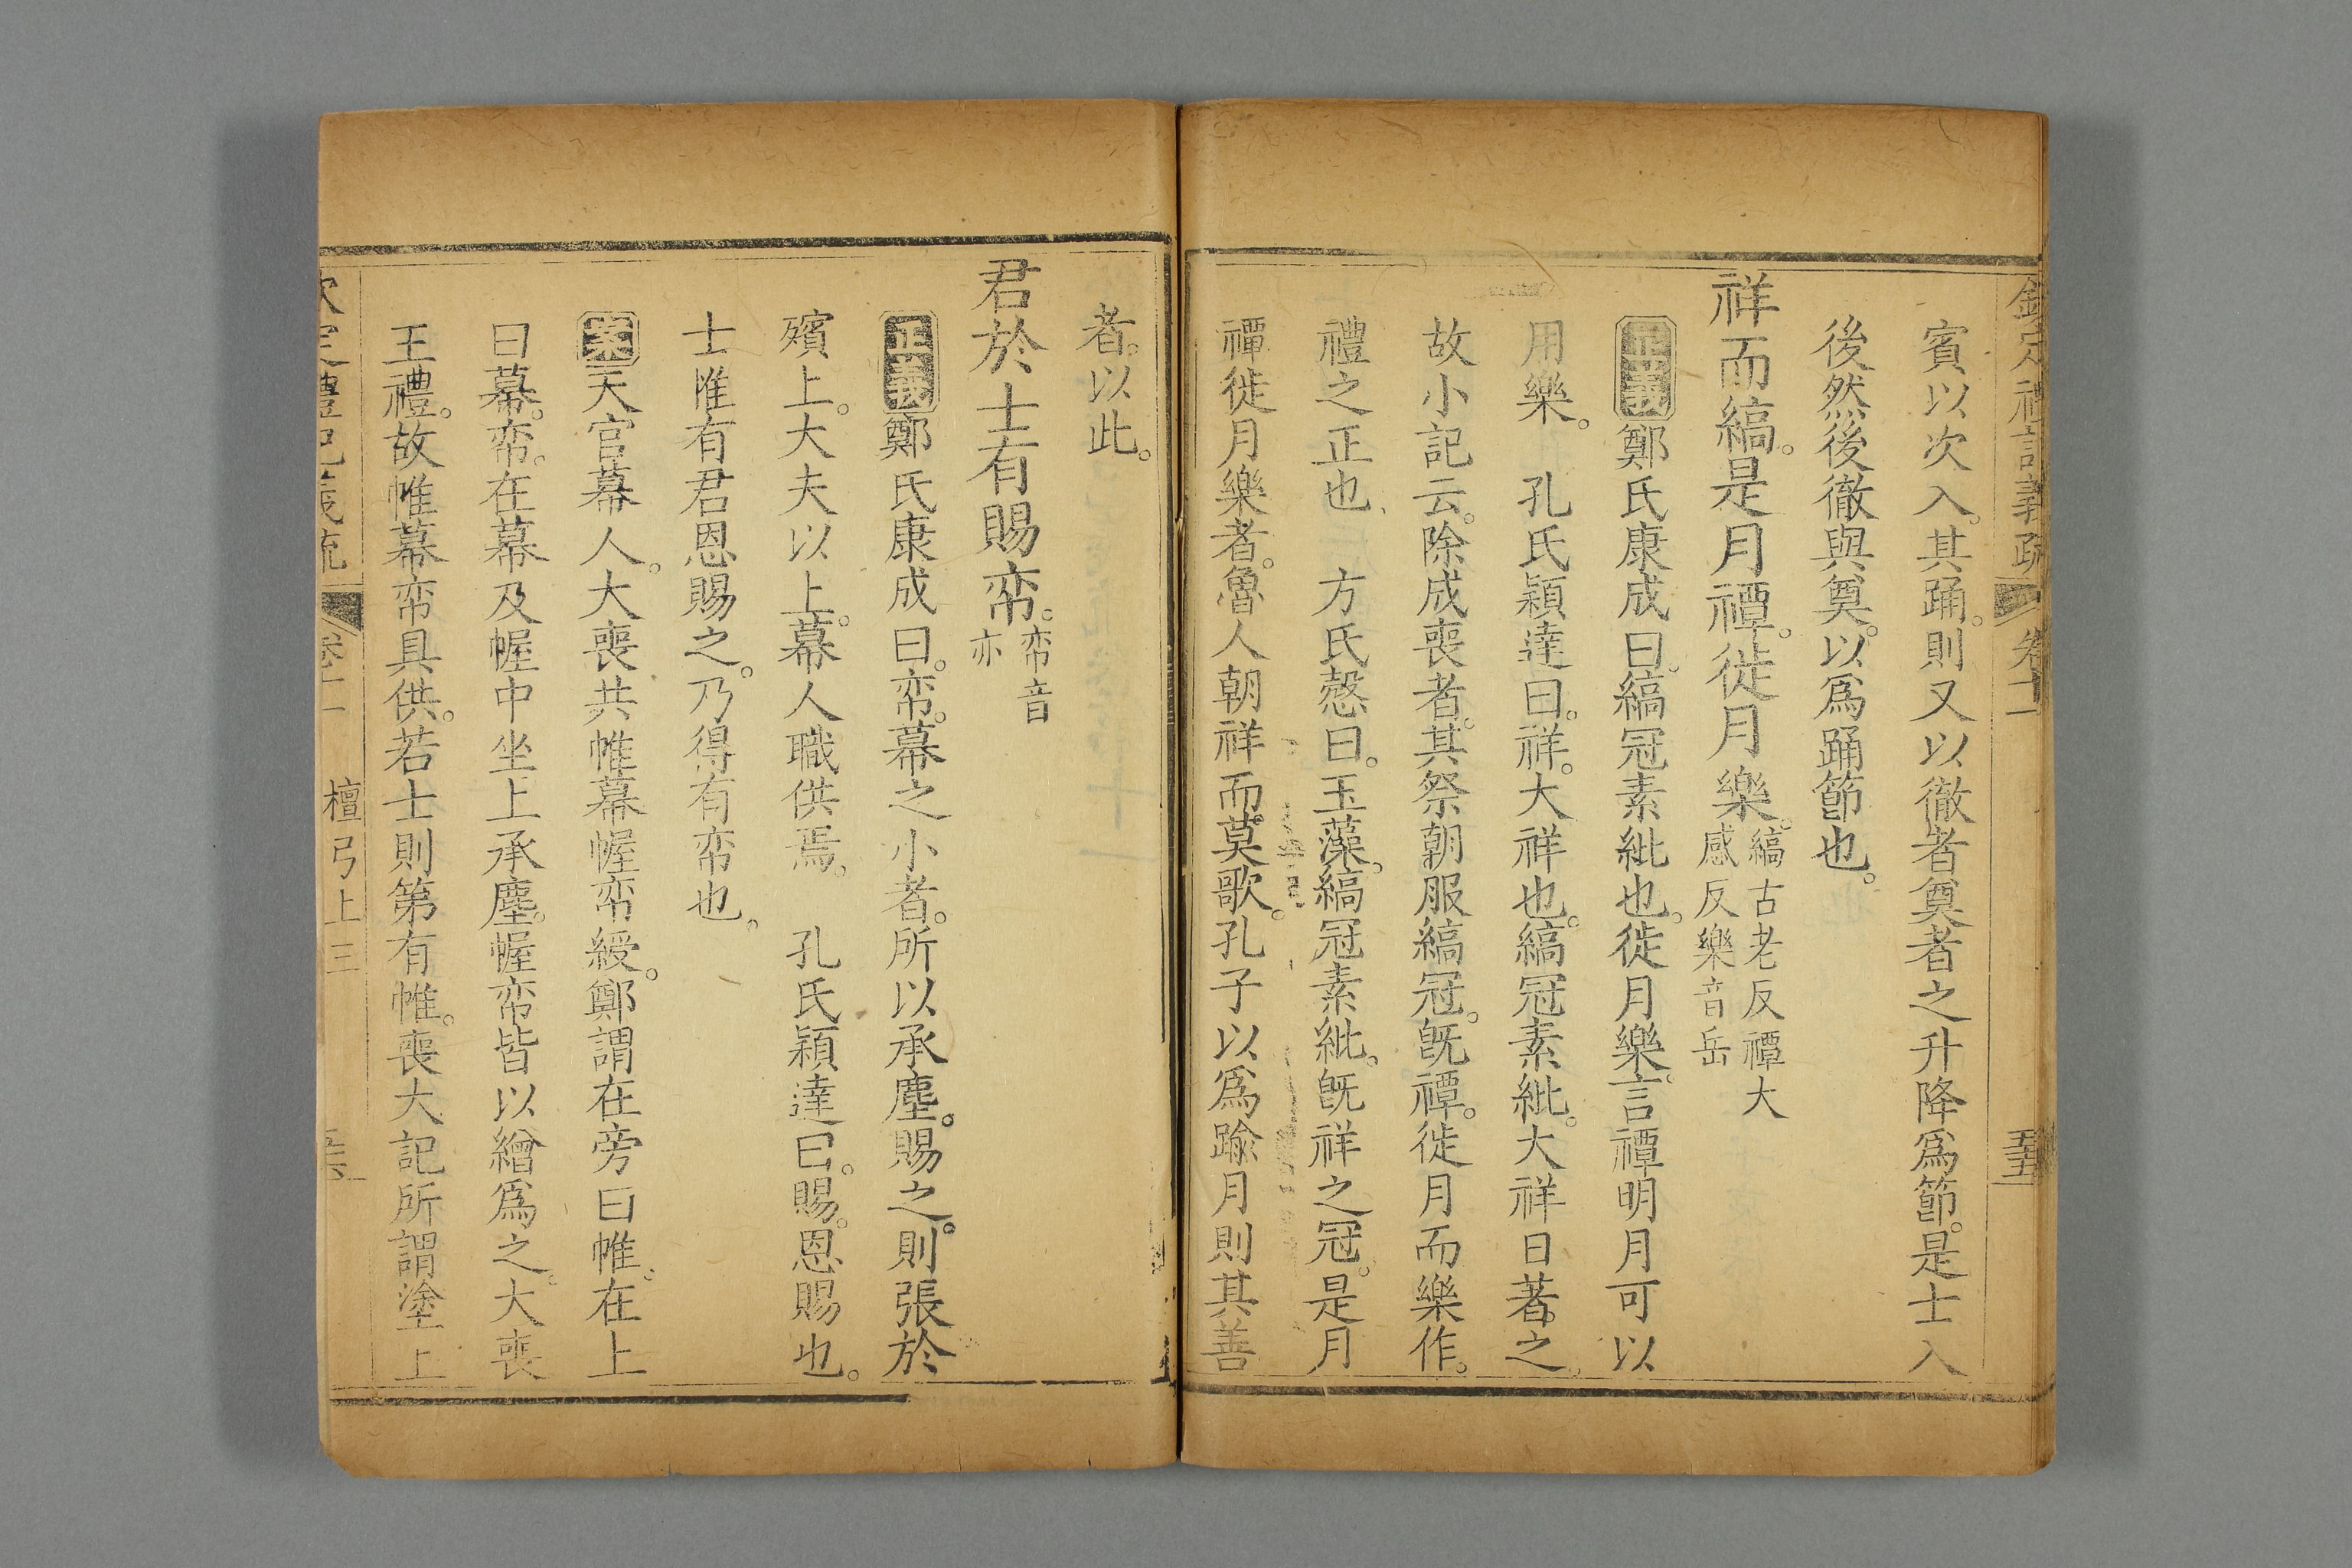 欽定禮記義疏 卷十一 五五
賓以次入。其踊。則又以徹者奠者之升降爲節。是士入
後然後徹與奠。以爲踊節也。
祥而縞。是月禫。徙月樂。縞古老反禫大
感反樂音岳
正義鄭氏康成曰。縞冠素紕也。徙月樂。言禫明月可以
用樂。 孔氏穎達曰。祥。大祥也。縞冠素紕。大祥日著之。
故小記云。除成喪者。其祭朝服縞冠。旣禫。徙月而樂作。
禮之正也。 方氏慤曰。玉藻。縞冠素紕。旣祥之冠。是月
禫徙月樂者。魯人朝祥而莫歌。孔子以爲踰月則其善
者。以此。
君於士有賜帟。帟音
亦
正義鄭氏康成曰。帟。幕之小者。所以承塵。賜之。則張於
殯上。大夫以上。幕人職供焉。 孔氏穎達曰。賜。恩賜也。
士唯有君恩賜之。乃得有帟也。
案天官幕人。大喪共帷幕幄帟綬。鄭謂在旁曰帷。在上
曰幕。帟。在幕及幄中坐上承塵。幄帟皆以繒爲之。大喪
王禮。故帷幕帟具供。若士則第有帷。喪大記所謂塗上
欽定禮記義疏 卷十一 檀弓上三